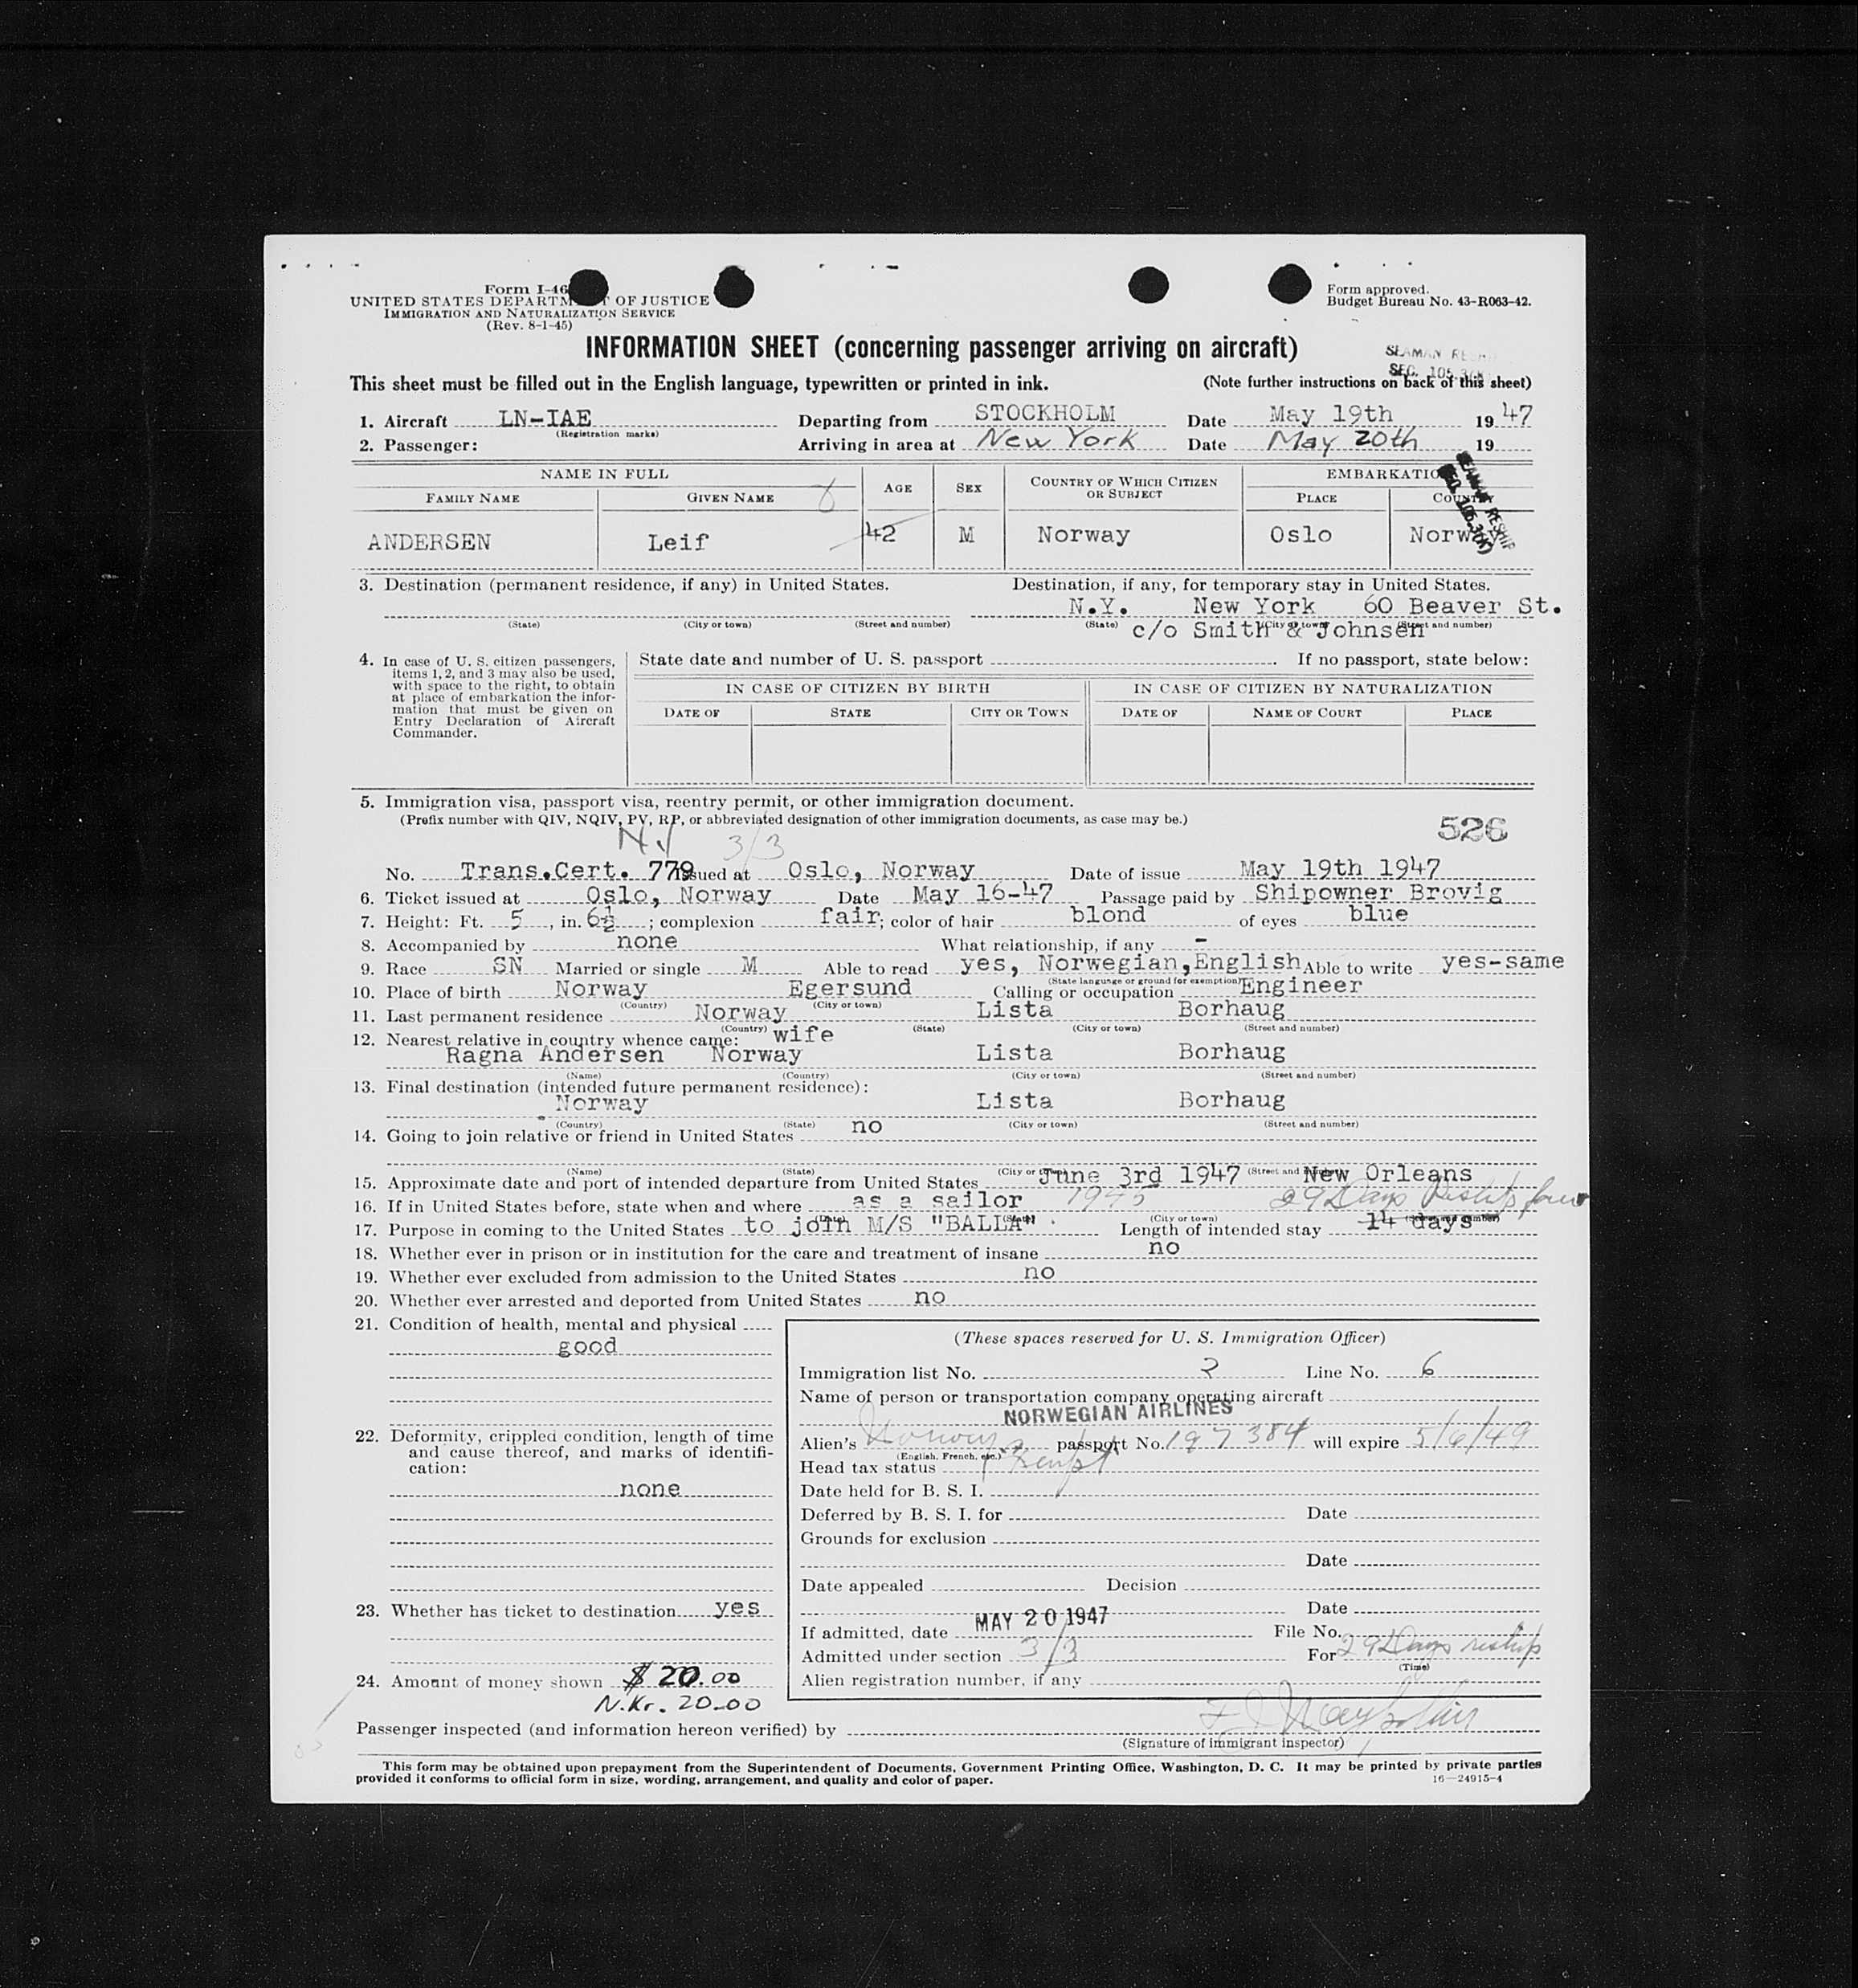 Form I-46
UNITED STATES DEPARTMENT OF JUSTICE
IMMIGRATION AND NATURALIZATION SERVICE
(Rev. 8-1-45)
Form approved.
Budget Bureau No. 43-R063-42.
INFORMATION SHEET (concerning passenger arriving on aircraft)
SEAMAN
SEC. 105.3(K)
This sheet must be filled out in the English language, typewritten or printed in ink. (Note further instructions on back of this sheet)
1. Aircraft LN-IAE Departing from STOCKHOLM Date May 19th 1947
(Registration marks)
2. Passenger: Arriving in area at New York Date May 20th 19
NAME IN FULL AGE SEX COUNTRY OF WHICH CITIZEN OR SUBJECT EMBARKATION
FAMILY NAME GIVEN NAME PLACE COUNTRY
SEAMAN RESHIP
SEC. 105.3(K)
ANDERSEN Leif 42 M Norway Oslo Norway
3. Destination (permanent residence, if any) in United States. Destination, if any, for temporary stay in United States.
N.Y. New York 60 Beaver St.
(State) (City or town) (Street and number) (State) (City or town) (Street and number)
c/o Smith & Johnsen
4. In case of U. S. citizen passengers, items 1, 2, and 3 may also be used, with space to the right, to obtain at place of embarkation the information that must be given on Entry Declaration of Aircraft Commander.
State date and number of U. S. passport . If no passport, state below:
IN CASE OF CITIZEN BY BIRTH IN CASE OF CITIZEN BY NATURALIZATION
DATE OF STATE CITY OR TOWN DATE OF NAME OF COURT PLACE
5. Immigration visa, passport visa, reentry permit, or other immigration document.
(Prefix number with QIV, NQIV, PV, RP, or abbreviated designation of other immigration documents, as case may be.)
526
3/3
No. Trans.Cert. 779 Issued at Oslo, Norway Date of issue May 19th 1947
6. Ticket issued at Oslo, Norway Date May 16-47 Passage paid by Shipowner Brovig
7. Height: Ft. 5, in. 6½; complexion fair; color of hair blond of eyes blue
8. Accompanied by none What relationship, if any -
9. Race SN Married or single M Able to read yes, Norwegian,English Able to write yes-same
(State language or ground for exemption)
10. Place of birth Norway Egersund Calling or occupation Engineer
(Country) (City or town)
11. Last permanent residence Norway Lista Borhaug
(Country) (State) (City or town) (Street and number)
12. Nearest relative in country whence came: wife
Ragna Andersen Norway Lista Borhaug
(Name) (Country) (City or town) (Street and number)
13. Final destination (intended future permanent residence):
Norway Lista Borhaug
(Country) (State) (City or town) (Street and number)
14. Going to join relative or friend in United States no
(Name) (State) (City or town) (Street and number)
15. Approximate date and port of intended departure from United States June 3rd 1947 New Orleans
16. If in United States before, state when and where as a sailor 1945 29 Days Reship
(Date) (State) (City or town) (Street and number)
17. Purpose in coming to the United States to join M/S "BALLA" Length of intended stay 14 days
18. Whether ever in prison or in institution for the care and treatment of insane no
19. Whether ever excluded from admission to the United States no
20. Whether ever arrested and deported from United States no
21. Condition of health, mental and physical
good
22. Deformity, crippled condition, length of time and cause thereof, and marks of identification:
none
23. Whether has ticket to destination yes
24. Amount of money shown $ 20.00
N.Kr. 20.00
(These spaces reserved for U. S. Immigration Officer)
Immigration list No. 2 Line No. 6
Name of person or transportation company operating aircraft
NORWEGIAN AIRLINES
Alien's Norway passport No. 197384 will expire 5/6/49
(English, French, etc.)
Head tax status Exempt
Date held for B. S. I.
Deferred by B. S. I. for Date
Grounds for exclusion
Date
Date appealed Decision
Date
If admitted, date MAY 20 1947 File No.
Admitted under section 3/3 For 29 Days reship
(Time)
Alien registration number, if any
Passenger inspected (and information hereon verified) by
(Signature of immigrant inspector)
This form may be obtained upon prepayment from the Superintendent of Documents, Government Printing Office, Washington, D. C. It may be printed by private parties
provided it conforms to official form in size, wording, arrangement, and quality and color of paper. 16—24915-4